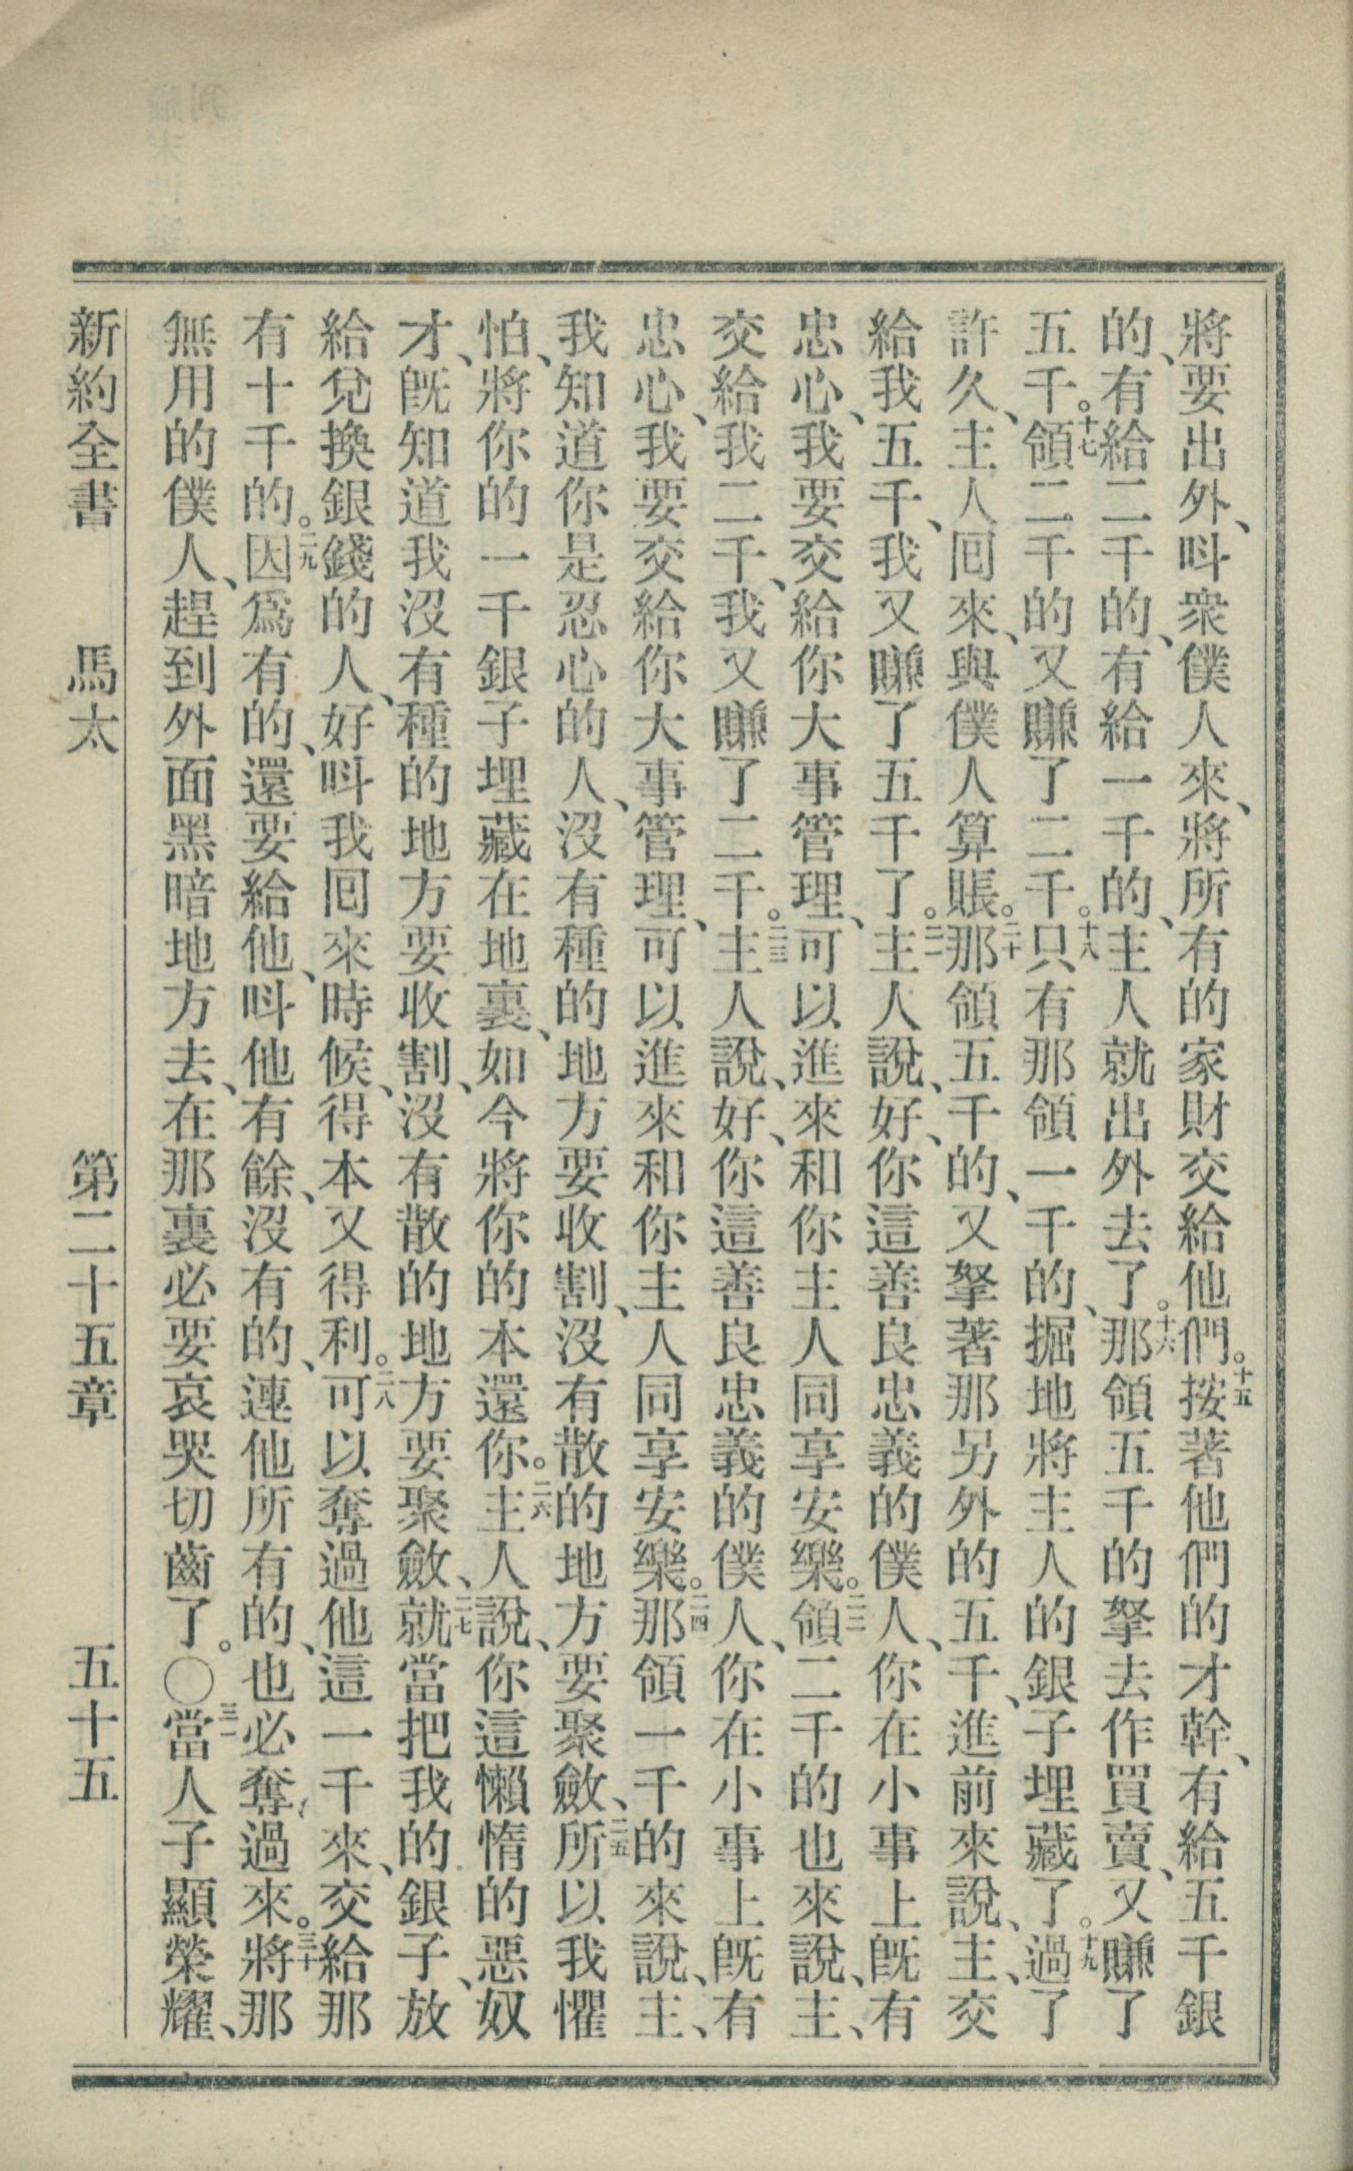 將要出外、呌衆僕人來、將所有的家財交給他們。十五按著他們的才幹、有給五千銀
的、有給二千的、有給一千的、主人就出外去了。十六那領五千的拏去作買賣、又賺了
五千。十七領二千的又賺了二千。十八只有那領一千的、掘地將主人的銀子埋藏了。十九過了
許久、主人囘來、與僕人算賬。二十那領五千的、又拏著那另外的五千、進前來說、主、交
給我五千、我又賺了五千了。二一主人說、好、你這善良忠義的僕人、你在小事上旣有
忠心、我要交給你大事管理、可以進來和你主人同享安樂。二二領二千的也來說、主、
交給我二千、我又賺了二千。二三主人說、好、你這善良忠義的僕人、你在小事上旣有
忠心、我要交給你大事管理、可以進來和你主人同享安樂。二四那領一千的來說、主、
我知道你是忍心的人、沒有種的地方要收割、沒有散的地方要聚斂、二五所以我懼
怕、將你的一千銀子埋藏在地裏、如今將你的本還你。二六主人說、你這懶惰的惡奴
才、旣知道我沒有種的地方要收割、沒有散的地方要聚斂、二七就當把我的銀子、放
給兌換銀錢的人、好呌我囘來時候、得本又得利。二八可以奪過他這一千來、交給那
有十千的。二九因爲有的、還要給他、呌他有餘、沒有的、連他所有的、也必奪過來。三十將那
無用的僕人、趕到外面黑暗地方去、在那裏必要哀哭切齒了。○三一當人子顯榮耀、
新約全書 馬太 第二十五章 五十五